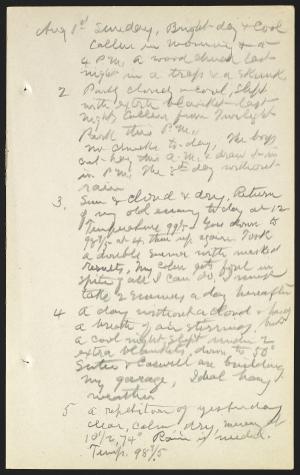 Aug 1st Sunday, Bright day & Cool
Callers in morning & at
4 P.M. a wood chuck last
night in a trap & a skunk
2 Partly cloudy & cool, slept
with extra blanket last
night. Callers from Twilight
Park this P.M.,
no chucks to-day, The boys
cut hay this A.M. & draw it in
in P.M. The 3d day without
rain
3. Sun & cloud & dry, Return
of my old enemy to day at 12
Temperature 99/5 Goes down to
98 3/5 at 4, then up again. Took
a double enema with marked
results, My colon gets foul in
spite of all I can do, I must
take 2 enemas a day hereafter
4 A day without a cloud & hardly
a breath of air stirring, but
a cool night, slept under 2
extra blankets, down to 50°
Suter & Caswell are building
my garage, Ideal hay
weather
5 a repetition of yesterday
clear, calm, dry, mercury at
10 1/2, 74° Rain is needed.
Temp. 98 3/5